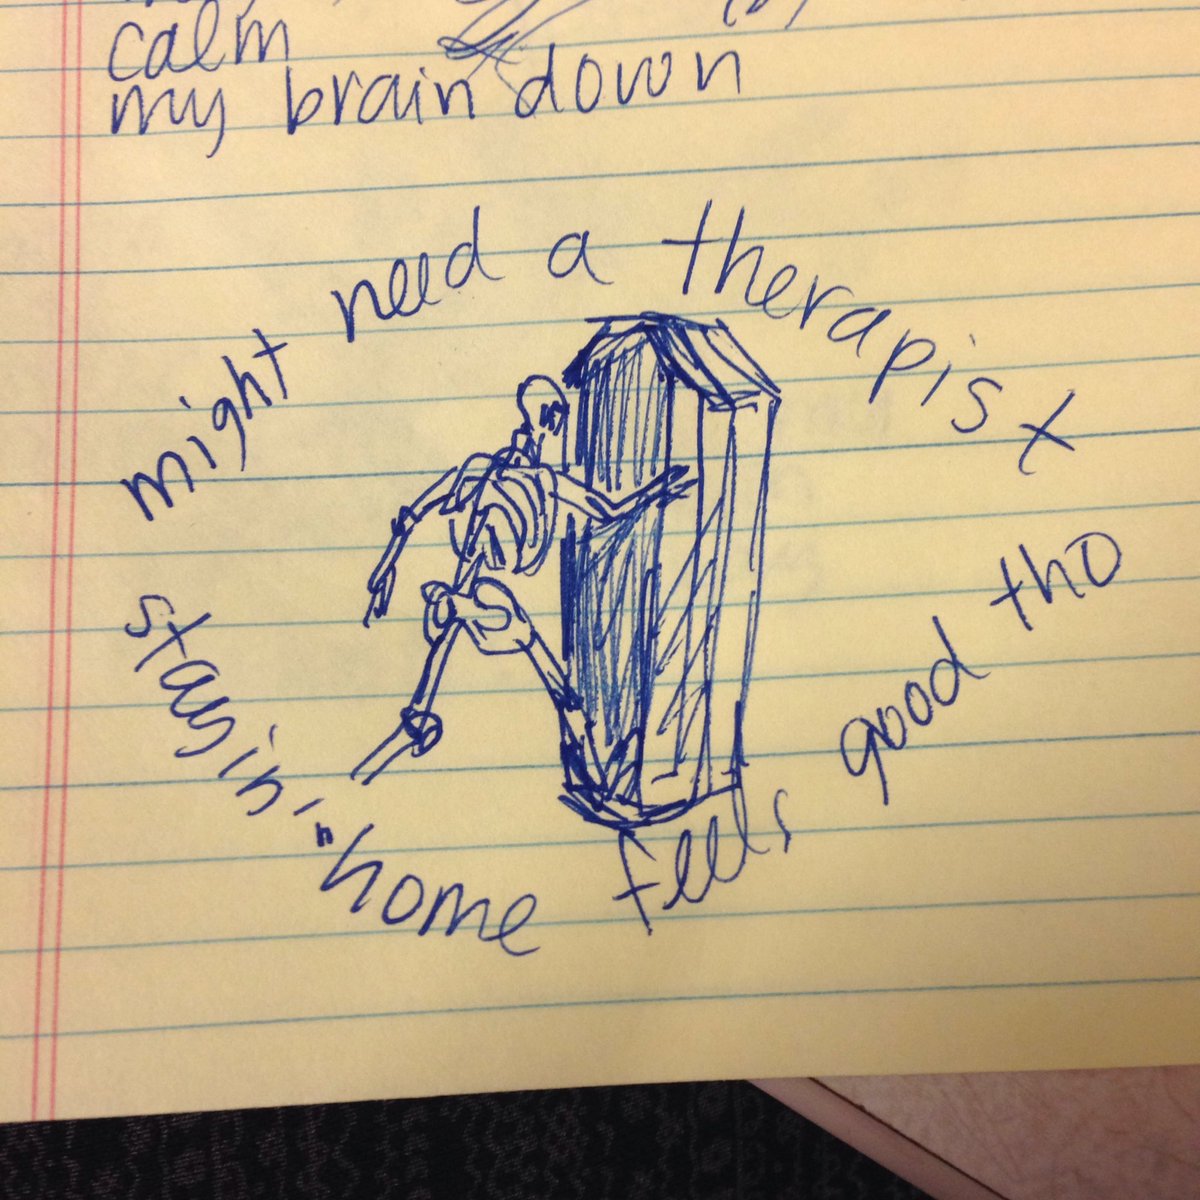 calm
my brain down
might need a therapist
stayin' "home feels good tho